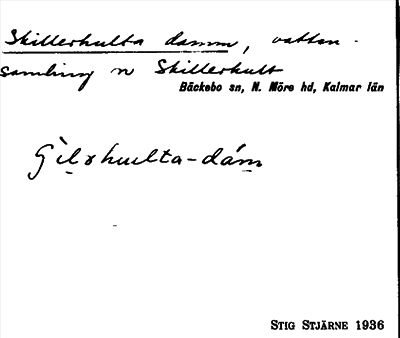 Skillerhulta damm, vatten-
samling n Skillerhult
Bäckebo sn, N. Möre hd, Kalmar län
STIG STJÄRNE 1936